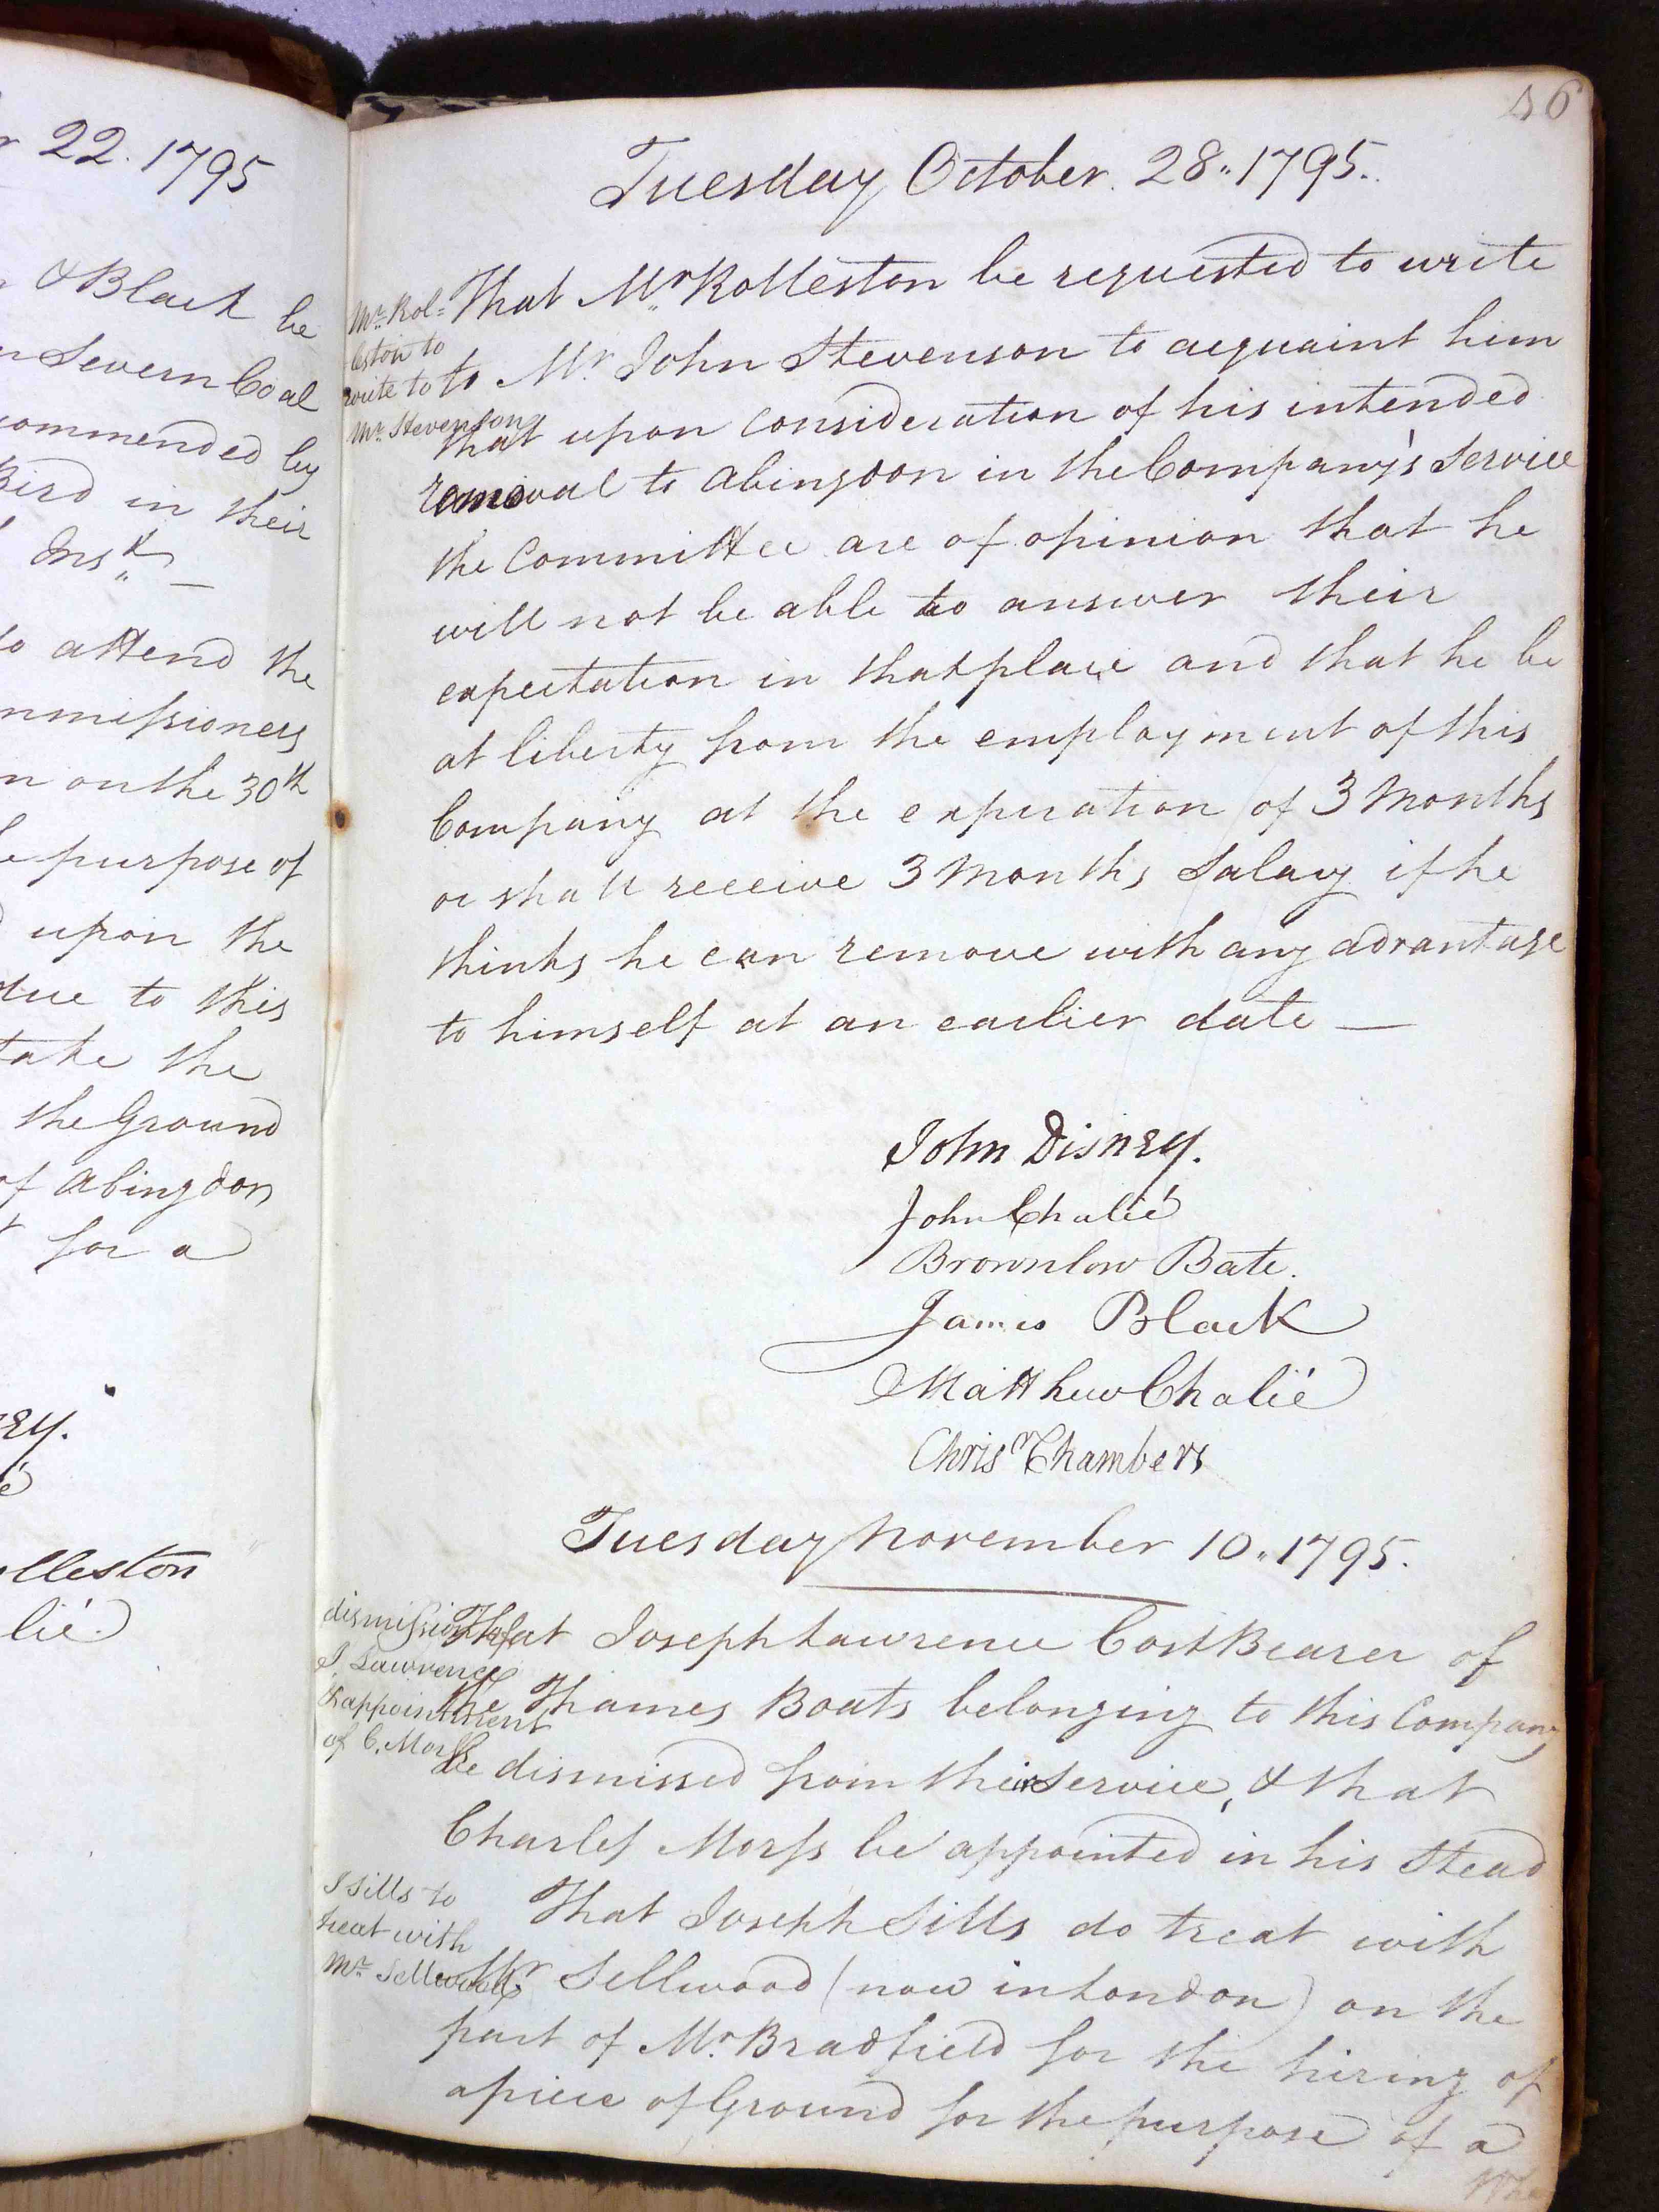 22. 1795
& Black be
Severn Coal
ommended by
Bird in their
Inst. —
to attend the
mmissioners
on the 30th
purpose of
upon the
due to this
take the
the Ground
of Abingdon
for a
ey.
é
lleston
lié.
56
Tuesday October. 28. 1795.
Mr. Rol=
leston to
write to
Mr. Stevenson
That Mr. Rolleston be requested to write
to Mr. John Stevenson to acquaint him
that upon consideration of his intended
removal to Abingdon in the Company's Service
the Committee are of opinion that he
will not be able to answer their
expectation in that place and that he be
at liberty from the employment of this
Company at the expiration of 3 Months
or shall receive 3 Months Salary if he
thinks he can remove with any advantage
to himself at an earlier date —
John Disney.
John Chalié
Brownlow Bate.
James Black
Matthew Chalié
Chrisr Chambers
Tuesday November 10. 1795.
dismission of
J. Lawrence
& appointment
of C. Morss
That Joseph Lawrence Cost Bearer of
the Thames Boats belonging to this Company
be dismissed from their Service, & that
Charles Morss be appointed in his Stead
J Sills to
treat with
Mr. Sellwood
That Joseph Sills do treat with
Mr Sellwood (now in London) on the
part of Mr. Bradfield for the hiring of
a piece of Ground for the purpose of a